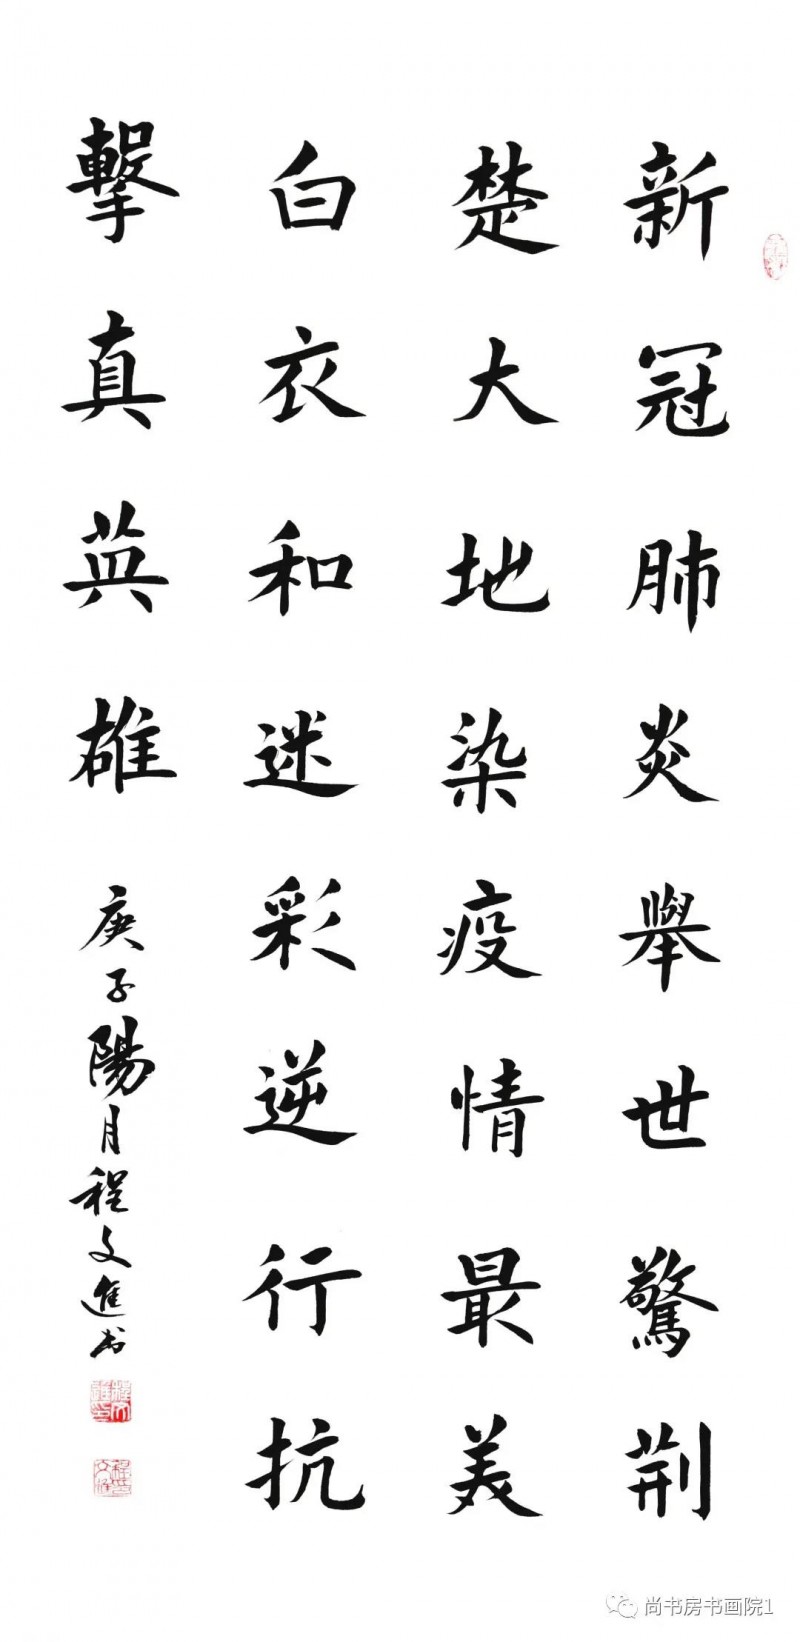 新冠肺炎舉世驚荆
楚大地染疫情最美
白衣和迷彩逆行抗
擊真英雄
庚子陽月程文進书
尚书房书画院1